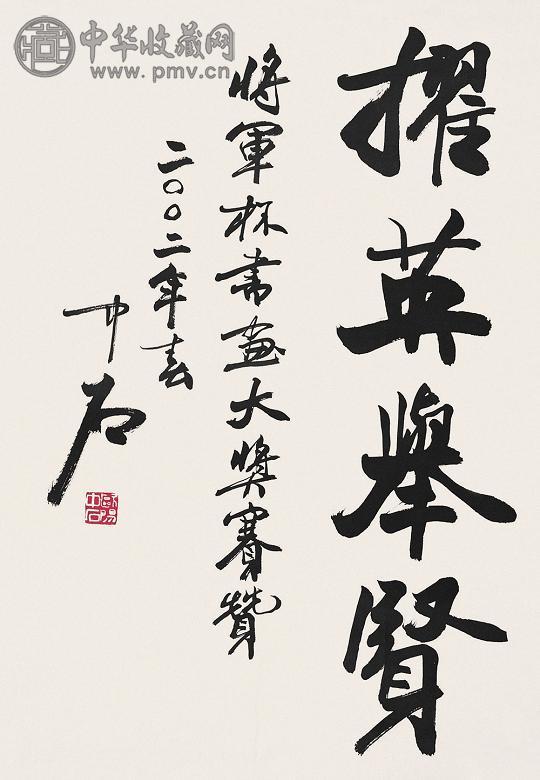 擢英舉賢
将軍杯書畫大奬賽贊
二〇〇二年春
中石
歐陽中石
中华收藏网
www.pmv.cn